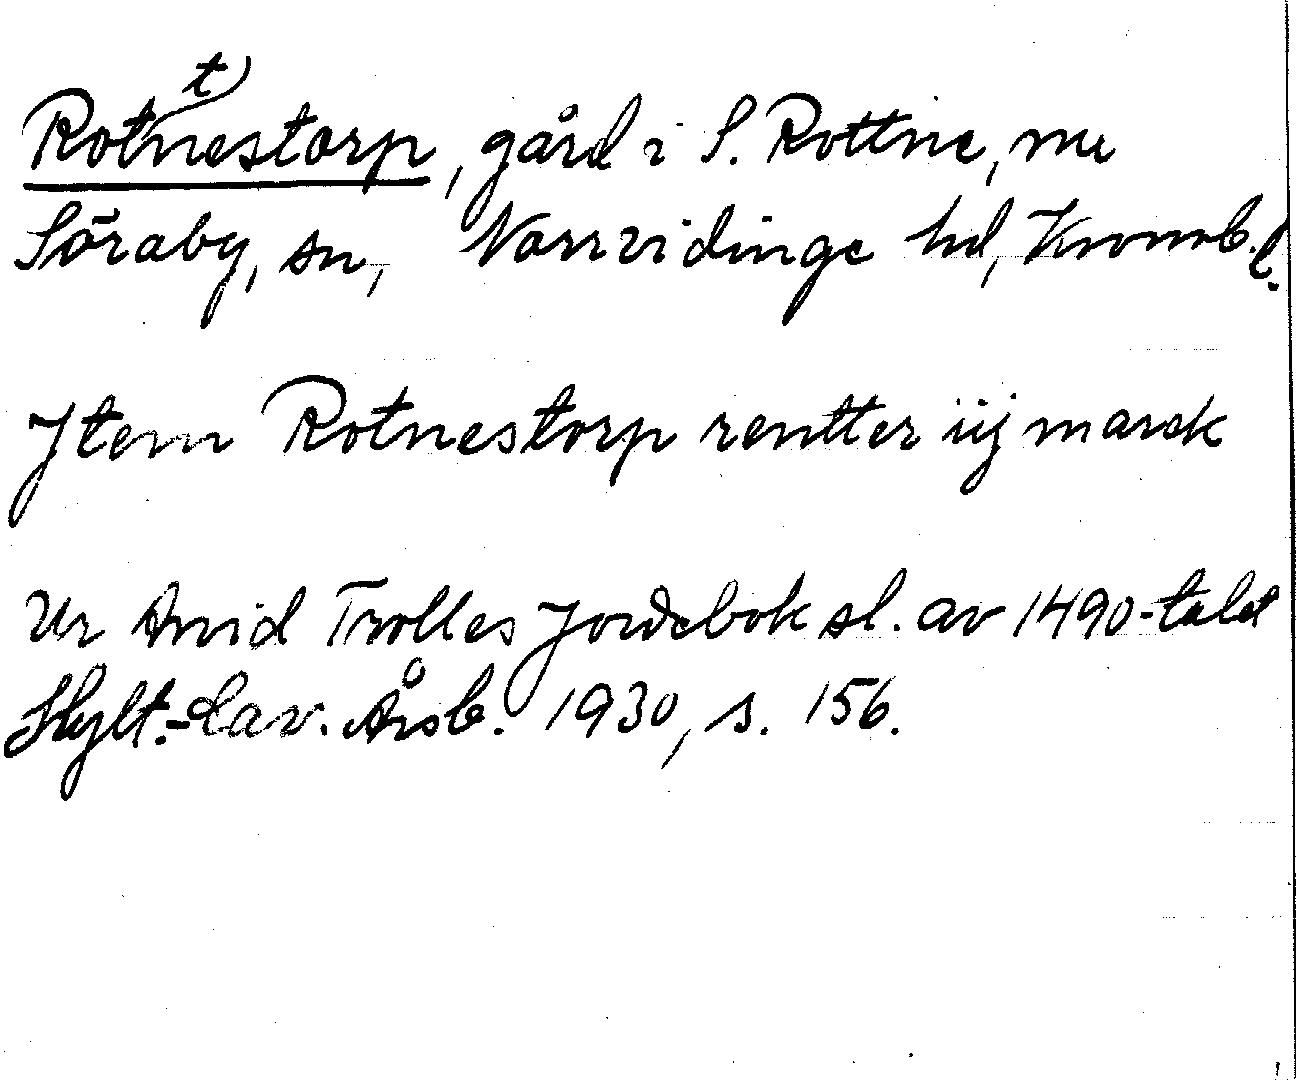 Rot(t)nestorp, gård i S. Rottne, nu
Söraby, sn, Norrvidinge hd, Kronob. l.
Jtem Rotnestorp rentter iij marck
Ur Arvid Trolles Jordebok sl. av 1490-talet
Hylt.-Cav. Årsb. 1930, s. 156.